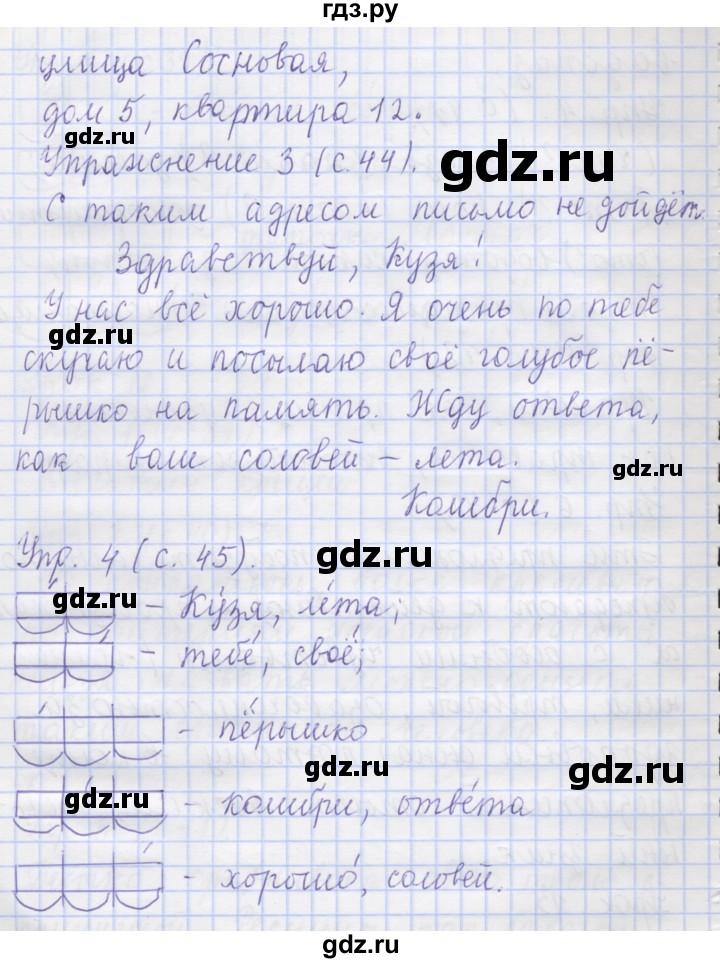 гдз.ру
улица Сосновая,
дом 5, квартира 12.
gdz.ru
Упражнение 3 (с. 44).
gdz.ru
С таким адресом письмо не дойдёт.
Здравствуй, Кузя!
У нас всё хорошо. Я очень по тебе
gdz.ru
скучаю и посылаю своё голубое пё-
рышко на память. Жду ответа,
как ваш соловей – лета.
gdz.ru
Колибри.
Упр. 4 (с. 45).
gdz.ru
gdz.ru
– Ку́зя, ле́та;
– тебе́, своё;
– пёрышко
gdz.ru
gdz.ru
gdz.ru
– колибри, отве́та
– хорошо́, соловей.
gdz.ru
gdz.ru